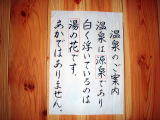 温泉のご案内
温泉は源泉であり
白く浮いているのは
湯の花です。
あかではありません。